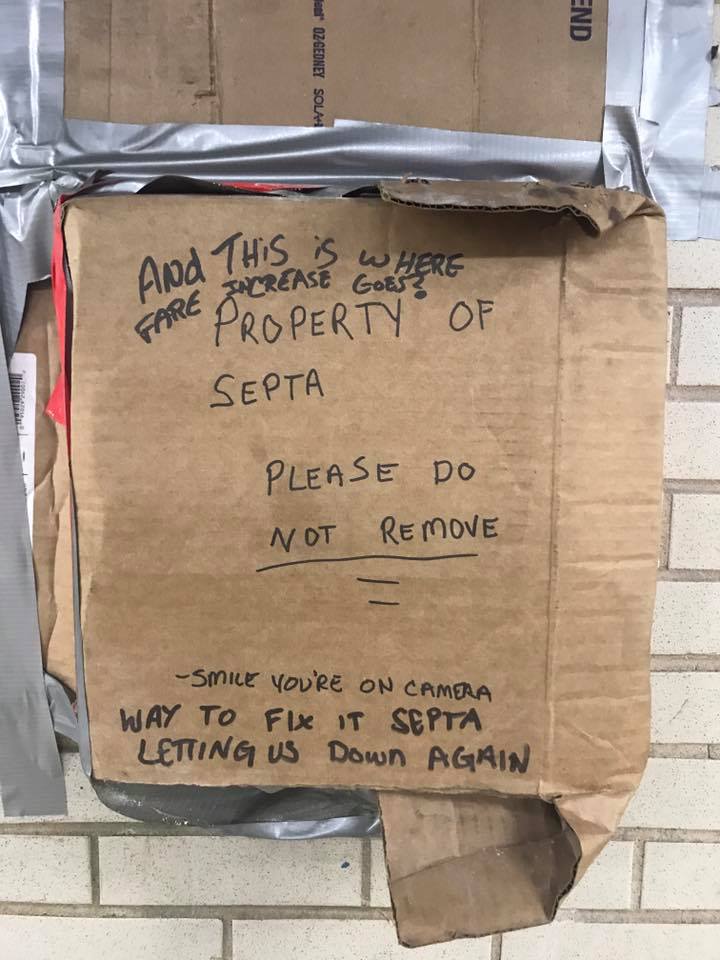 END
OZ-GEDNEY
AND THIS is WHERE
FARE INCREASE GOES?
PROPERTY OF
SEPTA
PLEASE DO
NOT REMOVE
-SMILE YOU'RE ON CAMERA
WAY TO FIX IT SEPTA
LETTING US DOWN AGAIN